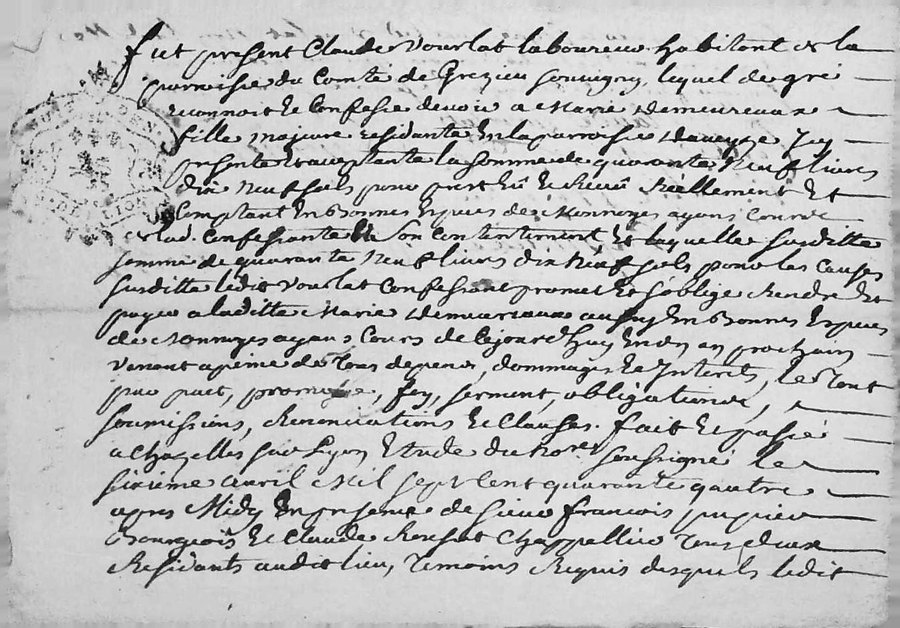 fut present Claude Vourlat laboureur habitant de la
parroisse du Comté de Grezieu Souvigny, lequel de gré
reconnoit et Confesse devoir a Marie Demeureaux
fille majure residante en la parroisse d'aveyze Icy
presente et acceptante la Somme de quarante Neuf livres
dix Neuf sols pour prest &c Reellement et
Comptant en Bonnes Espèces de Monnoyes ayans Cours
Confessante son Contentement et laquelle susditte
somme de quarante Neuf livres dix Neuf sols pour les Causes
susditte ledit Vourlat Confessant promet et s'oblige Rendre et
payer a laditte Marie Demeureaux en Bonnes Espèces
de Monnoyes ayans Cours de Cejourd'huy en un an prochain
venant a peine de Tous depens, dommages et Interets, le Tout
par pact, promesse, foy, serment, obligations,
soumissions, Renonciations et Clauses. fait et passé
a Chazelles sur Lyon Etude du Nore soussigné le
sixieme avril Mil sept Cent quarante quatre
apres Midy En presence de sieur francois pupier
Bourgeois et Claude Chappellier Tous deux
Residants audit lieu, Temoins Requis desquels ledit